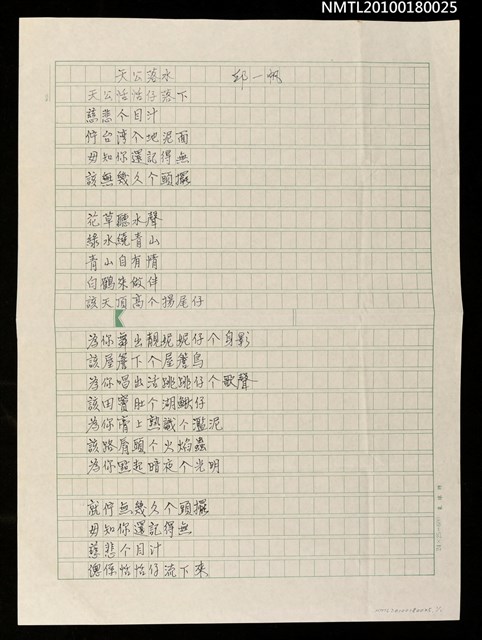 NMTL20100180025
天公落水 邱一帆
天公恬恬仔落下
慈悲个目汁
佇台湾个地泥面
毋知你還記得無
該無幾久个頭擺
花草聽水聲
綠水繞青山
青山自有情
白鶴來做伴
該天頂高个揚尾仔
為你舞出靚妮妮仔个身影
該屋簷下个屋簷鳥
為你唱出活跳跳仔个歌聲
該田竇肚个湖鰍仔
為你膏上熟識个濫泥
該路脣頭个火焰蟲
為你點起暗夜个光明
就佇無幾久个頭擺
毋知你還記得無
慈悲个目汁
愢愢恬恬仔流下來
NMTL20100180025